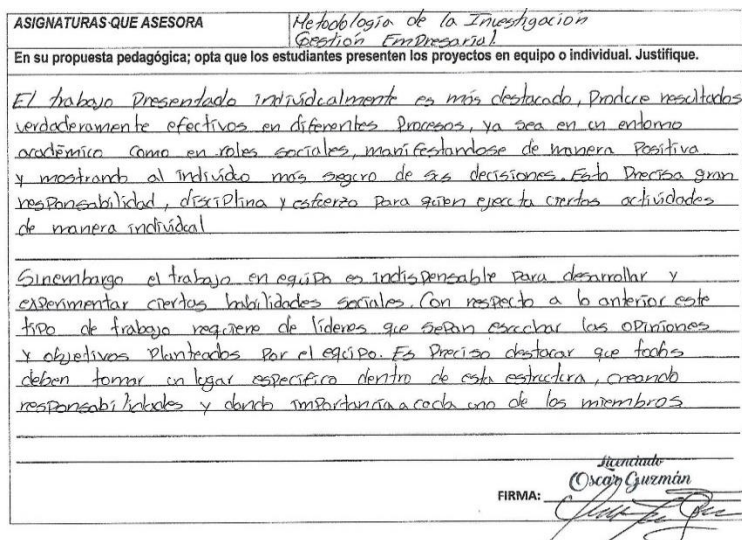 ASIGNATURAS QUE ASESORA
Metodología de la Investigación
Gestión Empresarial.
En su propuesta pedagógica; opta que los estudiantes presenten los proyectos en equipo o individual. Justifique.
El trabajo Presentado individualmente es más destacado, Produce resultados
verdaderamente efectivos en diferentes Procesos, ya sea en un entorno
académico como en roles sociales, manifestandose de manera Positiva
y mostrando al individuo más seguro de sus decisiones. Esto Precisa gran
responsabilidad, disciplina y esfuerzo Para quien ejecuta ciertas actividades
de manera individual
Sinembargo el trabajo en equipo es indispensable Para desarrollar y
experimentar ciertas habilidades sociales. Con respecto a lo anterior este
tipo de trabajo requiere de líderes que sepan escuchar las opiniones
y objetivos Planteados Por el equipo. Es Preciso destacar que todos
deben tomar un lugar específico dentro de esta estructura, creando
responsabilidades y dando importancia a cada uno de los miembros
Licenciado
Oscar Guzmán
FIRMA: